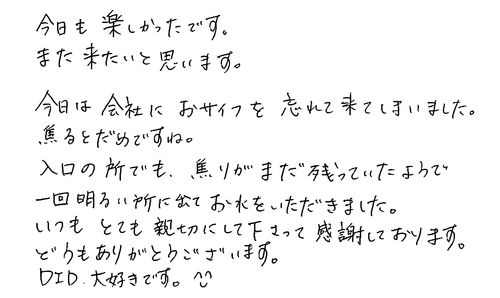 今日も楽しかったです。
また来たいと思います。
今日は会社におサイフを忘れて来てしまいました。
焦るとだめですね。
入口の所でも、焦りがまだ残っていたようで
一回明るい所に出てお水をいただきました。
いつもとても親切にして下さって感謝しております。
どうもありがとうございます。
DID.大好きです。^^